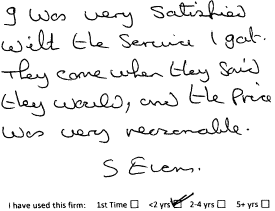 I was very satisfied
with the service I got.
They came when they said
they would, and the price
was very reasonable.
S Evans.
I have used this firm: 1st Time ☐ <2 yrs ☑ 2-4 yrs ☐ 5+ yrs ☐